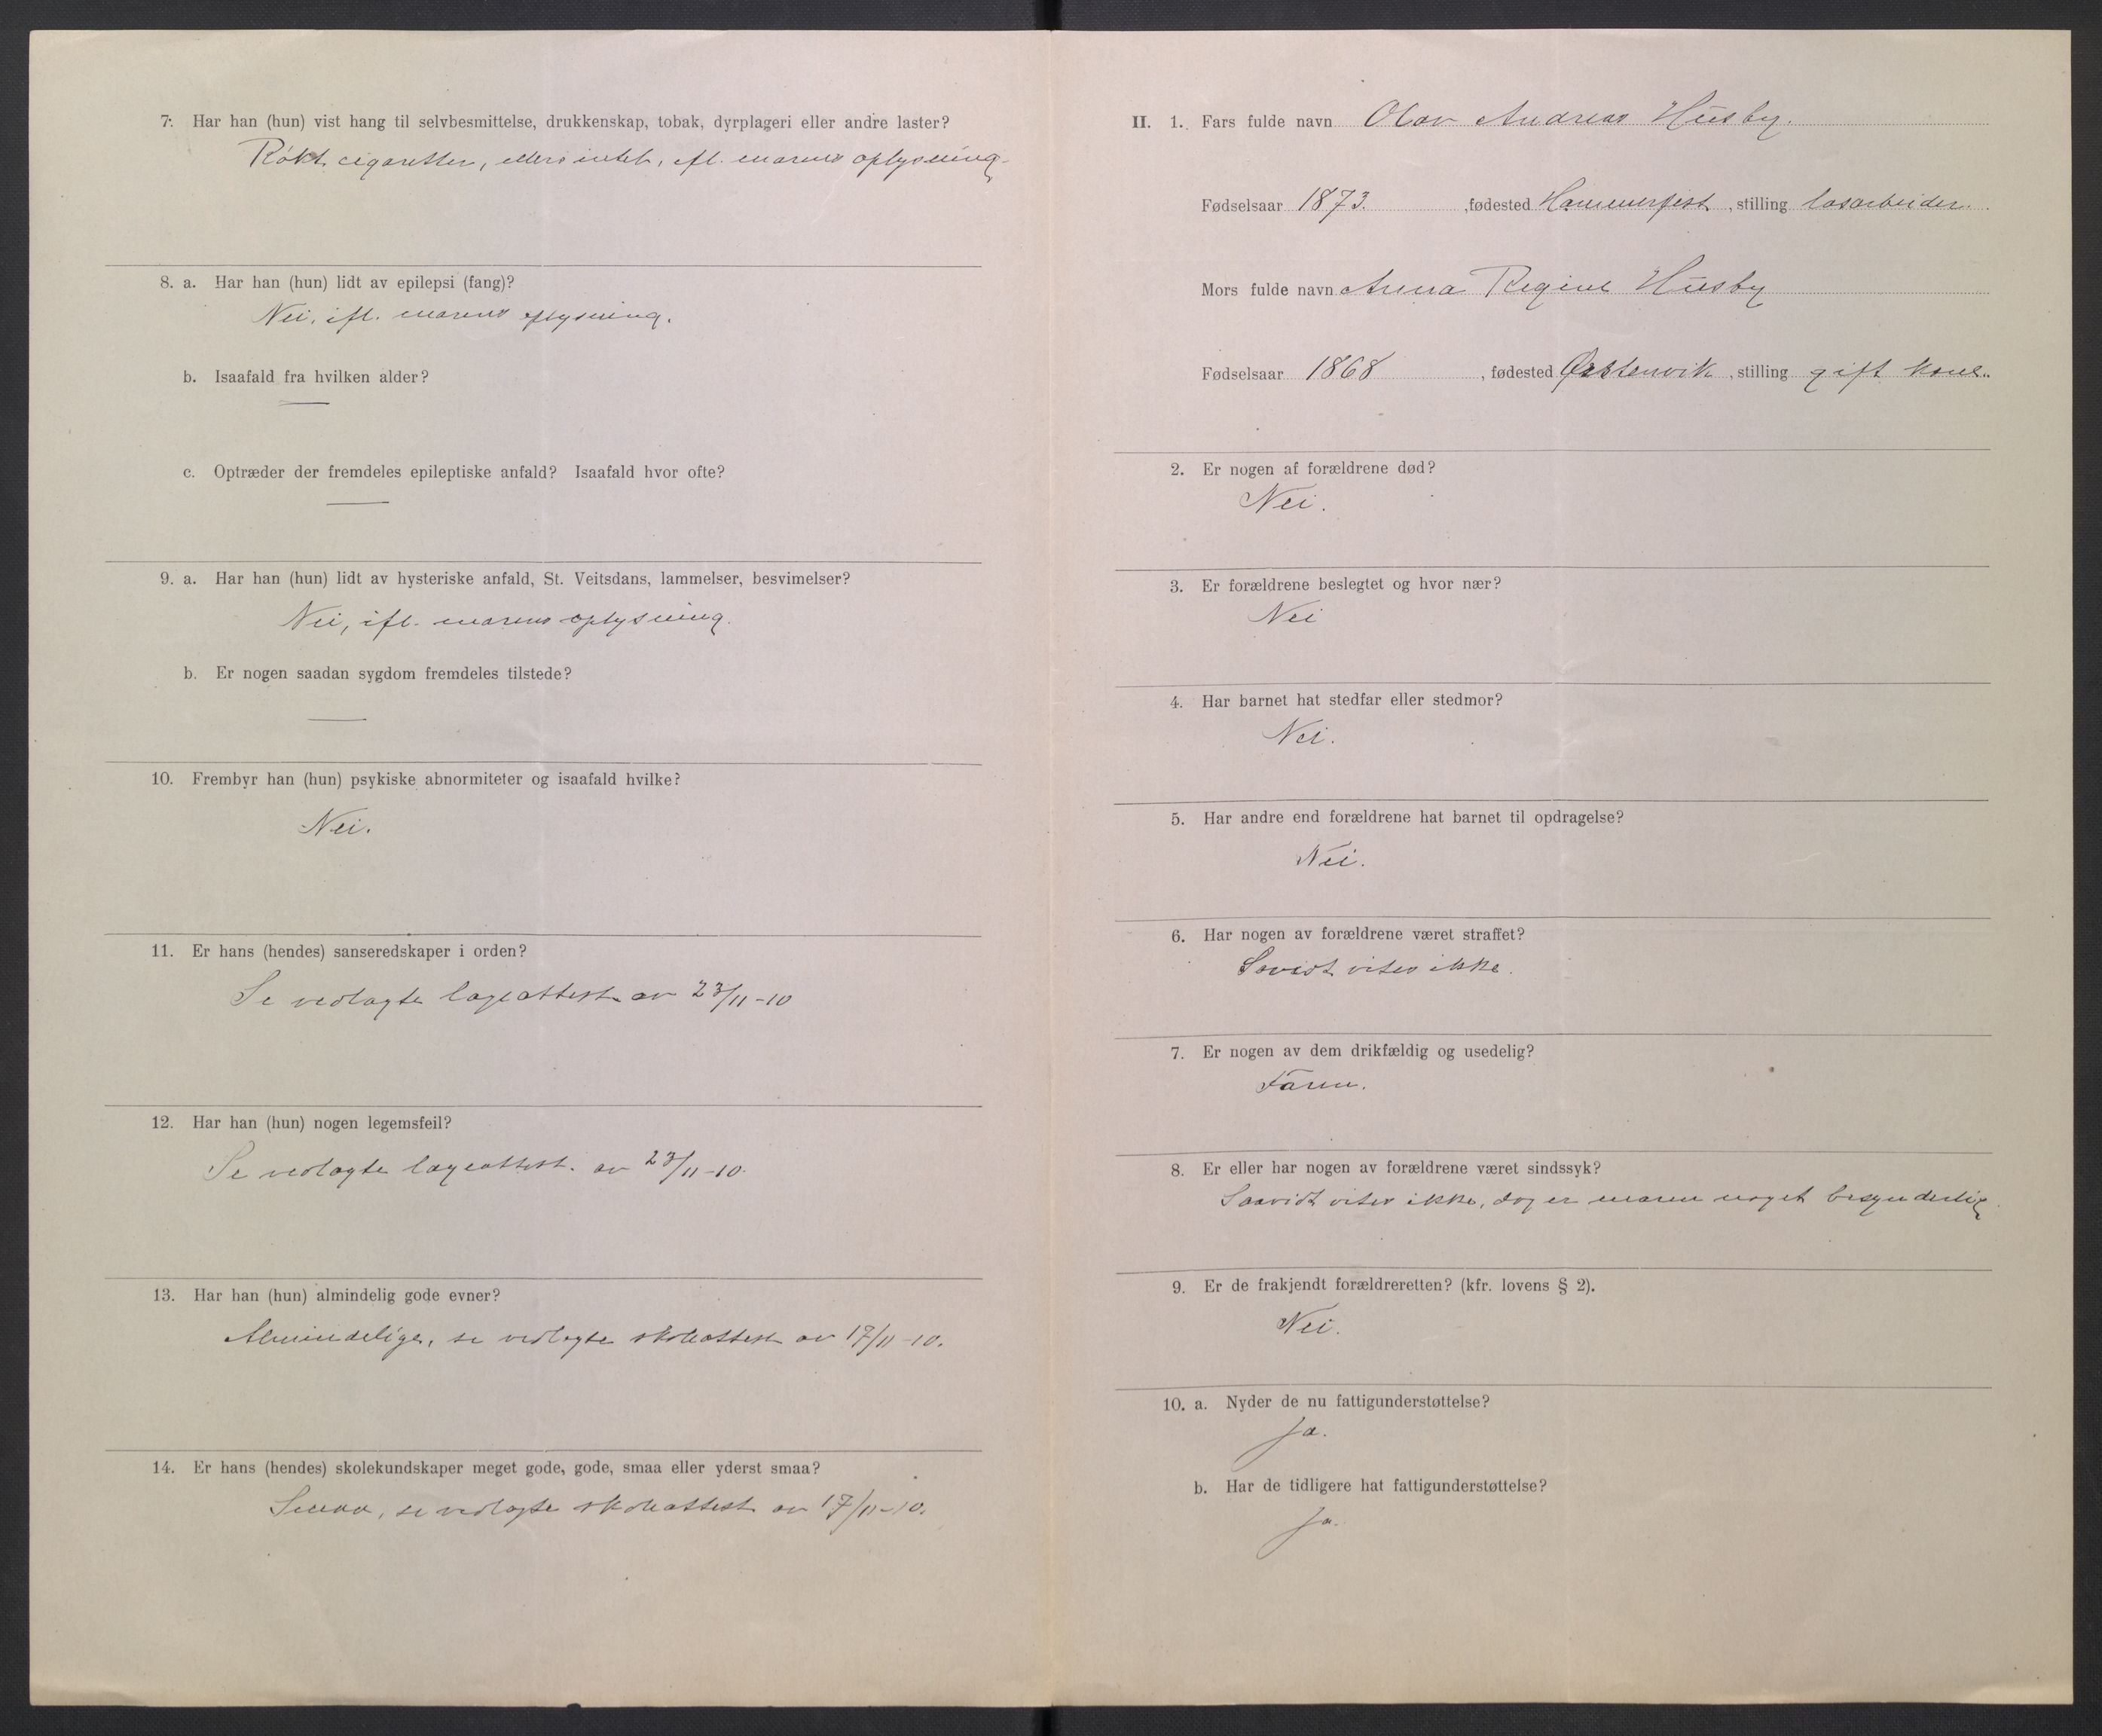 7. Har han (hun) vist hang til selvbesmittelse, drukkenskap, tobak, dyrplageri eller andre laster?
Røkt cigaretter, ellers intet, ifl. morens oplysning.
8. a. Har han (hun) lidt av epilepsi (fang)?
Nei, ifl. morens oplysning.
b. Isaafald fra hvilken alder?
—
c. Optræder der fremdeles epileptiske anfald? Isaafald hvor ofte?
—
9. a. Har han (hun) lidt av hysteriske anfald, St. Veitsdans, lammelser, besvimelser?
Nei, ifl. morens oplysning.
b. Er nogen saadan sygdom fremdeles tilstede?
—
10. Frembyr han (hun) psykiske abnormiteter og isaafald hvilke?
Nei.
11. Er hans (hendes) sanseredskaper i orden?
Se vedlagte lægeattest av 23/11-10
12. Har han (hun) nogen legemsfeil?
Se vedlagte lægeattest. av 23/11-10.
13. Har han (hun) almindelig gode evner?
Almindelige, se vedlagte skoleattest av 17/11-10.
14. Er hans (hendes) skolekundskaper meget gode, gode, smaa eller yderst smaa?
Smaa, se vedlagte skoleattest av 17/11-10.
II. 1. Fars fulde navn Olav Andreas Husby.
Fødselsaar 1873. , fødested Hammerfest, stilling løsarbeider.
Mors fulde navn Anna Regine Husby
Fødselsaar 1868 , fødested , stilling gift kone.
2. Er nogen af forældrene død?
Nei.
3. Er forældrene beslegtet og hvor nær?
Nei
4. Har barnet hat stedfar eller stedmor?
Nei.
5. Har andre end forældrene hat barnet til opdragelse?
Nei.
6. Har nogen av forældrene været straffet?
Savidt vites ikke.
7. Er nogen av dem drikfældig og usedelig?
Faren.
8. Er eller har nogen av forældrene været sindssyk?
Saavidt vites ikke, dog er moren noget besynderlig
9. Er de frakjendt forældreretten? (kfr. lovens § 2).
Nei.
10. a. Nyder de nu fattigunderstøttelse?
Ja.
b. Har de tidligere hat fattigunderstøttelse?
Ja.